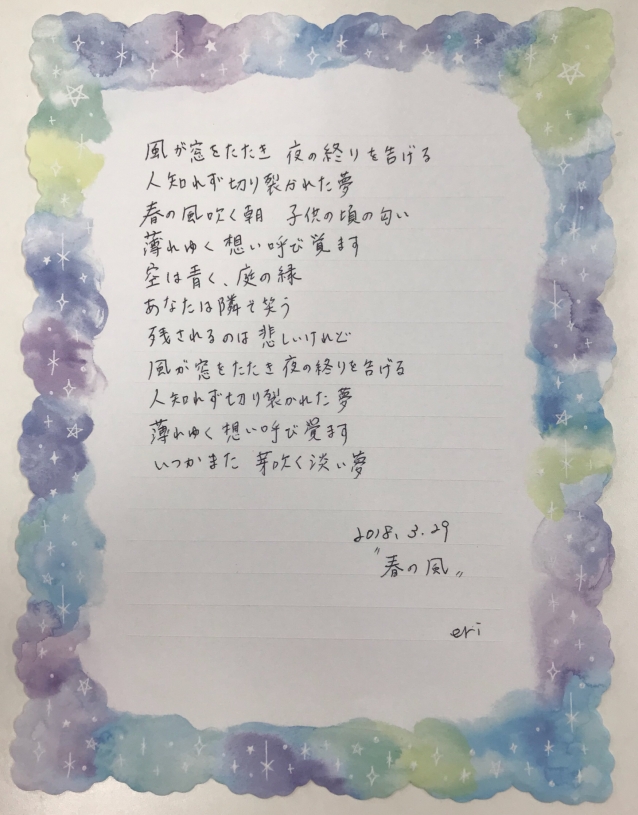 風が窓をたたき 夜の終りを告げる
人知れず切り裂かれた夢
春の風吹く朝 子供の頃の匂い
薄れゆく想い呼び覚ます
空は青く、庭の緑
あなたは隣で笑う
残されるのは悲しいけれど
風が窓をたたき 夜の終りを告げる
人知れず切り裂かれた夢
薄れゆく想い呼び覚ます
いつかまた 芽吹く淡い夢
2018.3.29
"春の風"
eri